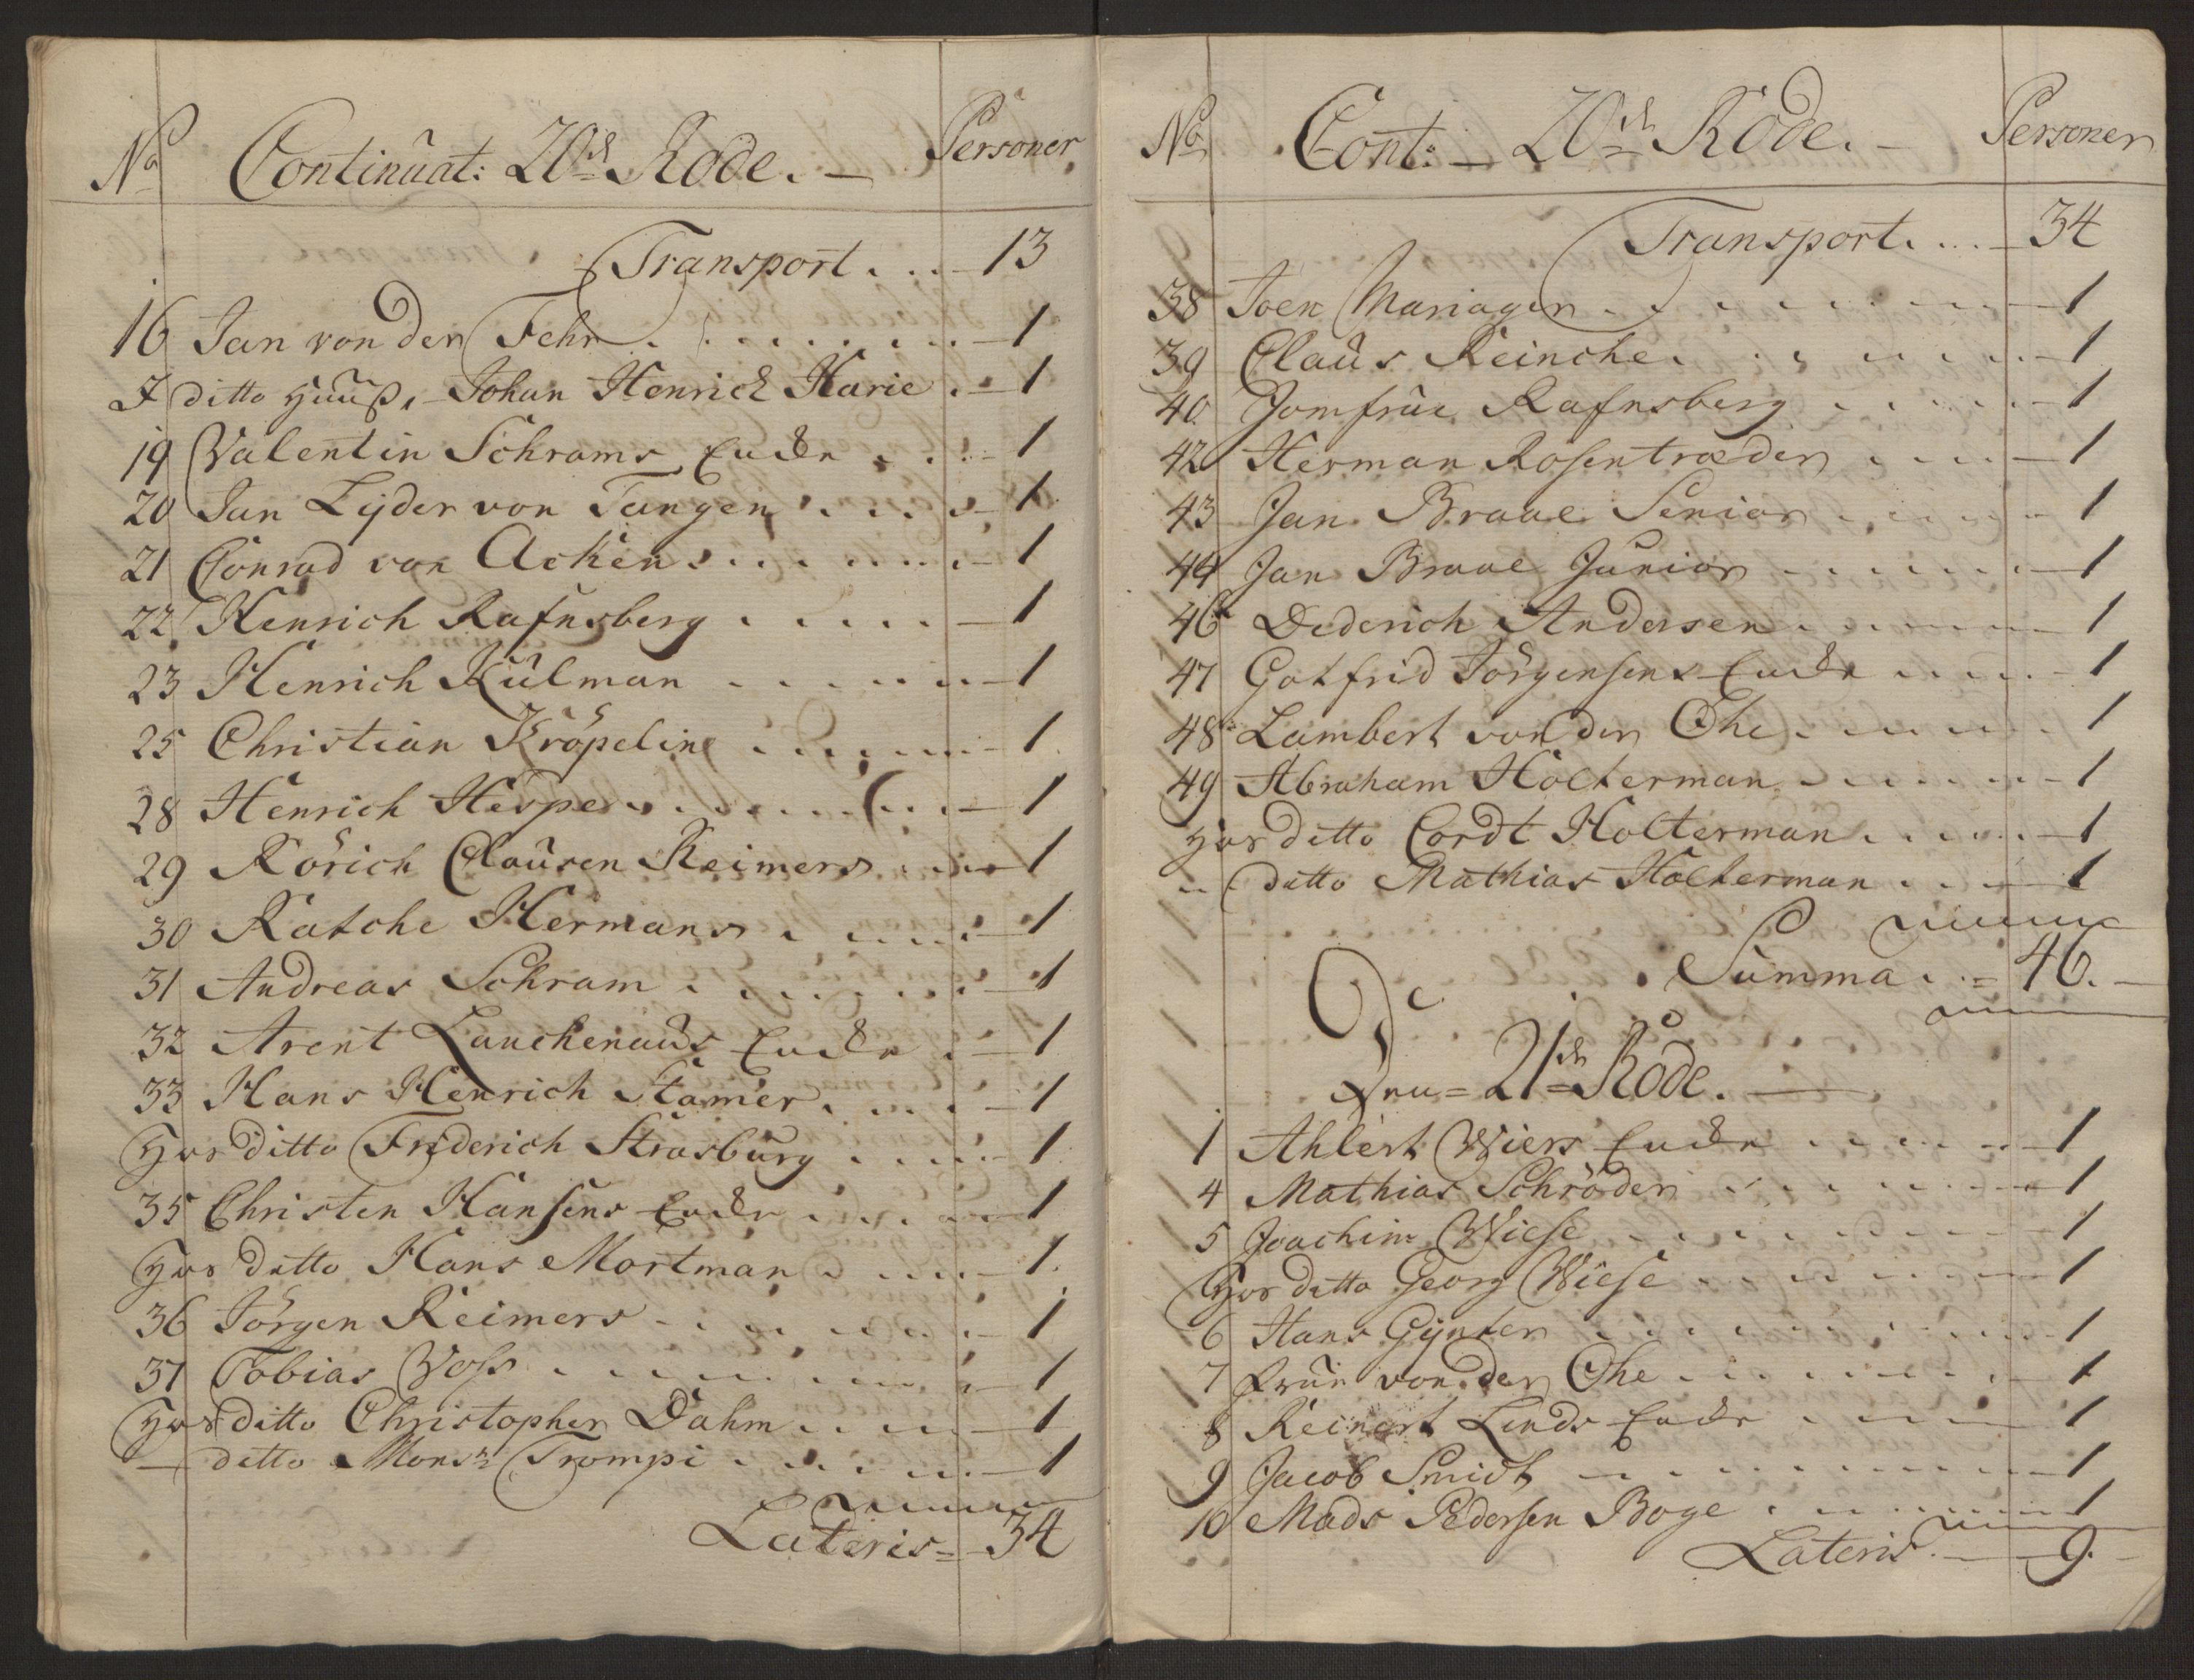 No Continuat: 20de Rode. Personer
Transport .... 13
16 Jan von der Fehr ........ 1
I ditto Huuß, Johan Henrich Harie . 1
19 Valentin Schrams Encke .... 1
20 Jan Lyder von Tangen .... 1
21 Conrad von Acken ....... 1
22 Henrich Rafnsberg ..... 1
23 Henrich Kulman ...... 1
25 Christian Kröpelin ...... 1
28 Henrich Hespe ........ 1
29 Rörich Clausen Reimers ... 1
30 Ratche Hermans ..... 1
31 Andreas Schram ...... 1
32 Arent Encke . 1
33 Hans Henrich Stamer .... 1
Hos ditto Friderich Strasburg .... 1
35 Christen Hansens Encke .... 1
Hos ditto Hans Mortman .... 1
36 Jörgen Reimers ...... 1
37 Tobias Voss ........ 1
Hos ditto Christopher Dahm .... 1
— ditto Monsr Trompi ..... 1
Lateris = 34
No Cont: — 20de Rode. — Personer
Transport .... 34
38 Joen Mariager ........ 1
39 Claus Reinche ...... 1
40 Jomfrue Rafnsberg ..... 1
42 Herman Rosentræder .... 1
43 Jan Braae Senior .... 1
44 Jan Braae Junior ...... 1
46 Dederich Andersen ...... 1
47 Gotfrid Jörgensens Encke .... 1
48 Lambert von der Ohe ..... 1
49 Abraham Holterman ...... 1
Hos ditto Cordt Holterman ..... 1
" ditto Mathias Holterman .... 1
Summa .. = 46. —
Den = 21de Rode. —
1 Ahlert Wiers Encke ..... 1
4 Mathias Schröder ...... 1
5 Joachim Wiese ....... 1
Hos ditto Georg Wiese ...... 1
6 Hans Gynter ........ 1
7 Frue von der Ohe ....... 1
8 Reinert Linds Encke .... 1
9 Jacob Smidt ......... 1
10 Mads Pedersen Boge ..... 1
Lateris — 9.